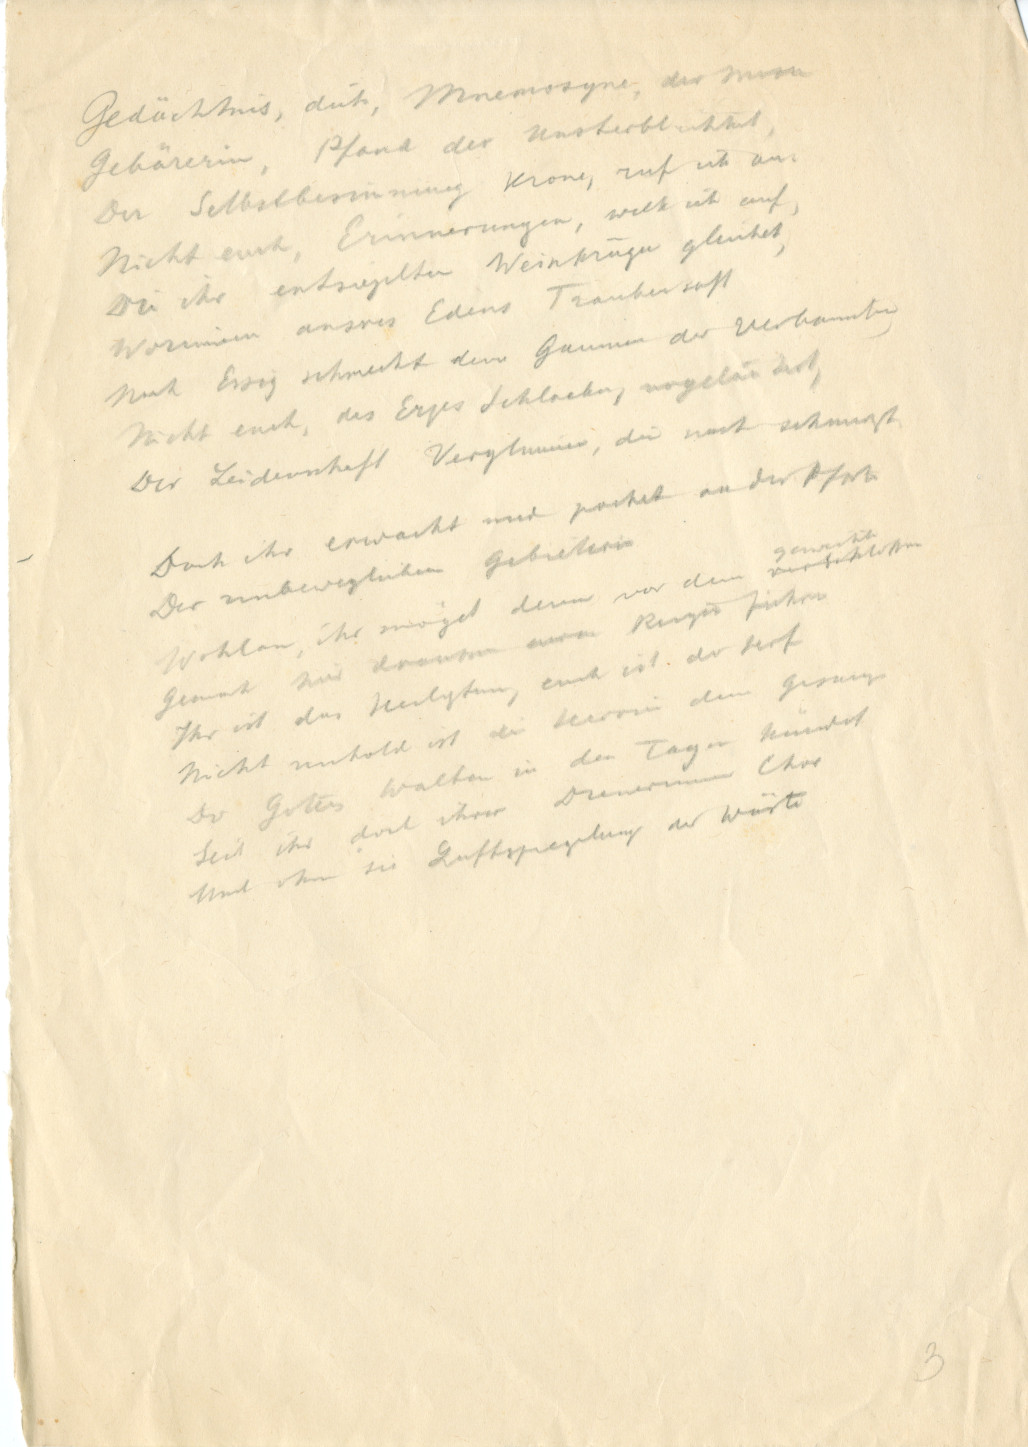 Gedächtnis, dich, Mnemosyne, der Musen
Gebärerin, Pfand der Unsterblichkeit,
Der Selbstbesinnung Krone, ruf ich an.
Nicht euch, Erinnerungen, weck ich auf,
Die ihr entsiegelten Weinkrügen gleichet,
Worinnen unsres Edens Traubensaft
Nach Essig schmeckt dem Gaumen der Verbannten,
Nicht euch, des Erzes Schlacken, ungeläutert,
Der Leidenschaft Verglimmen, die noch schmerzt.
Doch ihr erwacht und pochet an der Pforte
Der unbeweglichen Gebieterin
Wohlan, ihr möget denn vor dem verschloßnen
geweihten
Gemach hier draussen euren Reigen
Ihr ist das Heiligtum, euch ist der Hof
Nicht unhold ist die Herrin dem Gesange
Der Gottes Walten in den Tagen kündet
Seid ihr doch ihrer Dienerinnen Chor
Und ohne sie Luftspiegelung der Wüste
3